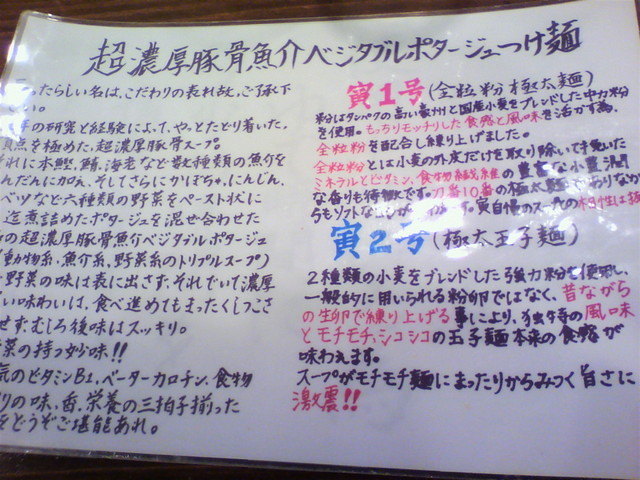 超濃厚豚骨魚介ベジタブルポタージュつけ麺
ったらしい名は、こだわりの表れ故、ご了承下
さい。
の研究と経験によって、やっとたどり着いた、
点を極めた、超濃厚豚骨スープ。
れに本鰹、鯖、海老など数種類の魚介を
んだんに加え、そしてさらにかぼちゃ、にんじん、
ベツなど六種類の野菜をペースト状に
迄煮詰めたポタージュを混ぜ合わせた
の超濃厚豚骨魚介ベジタブルポタージュ
動物系、魚介系、野菜系のトリプルスープ)
野菜の味は表に出さず、それでいて濃厚
い味わいは、食べ進めてもまったくしつこさ
せず、むしろ後味はスッキリ。
菜の持つ妙味!!
気のビタミンB1、ベーターカロチン、食物
りの味、香、栄養の三拍子揃った
をどうぞご堪能あれ。
寅1号(全粒粉極太麺)
粉はタンパクの高い豪州と国産小麦をブレンドした中力粉
を使用。もっちりモッチリした食感と風味を活かす為、
全粒粉を配合し練り上げました。
全粒粉とは小麦の外皮だけを取り除いて挽いた
ミネラルとビタミン、食物繊維の豊富な小麦
な香りも特徴です。刃番10番の極太麺でありなが
らもソフトな わります。寅自慢のスープとの相性は抜
寅2号(極太玉子麺)
2種類の小麦をブレンドした強力粉を使用し、
一般的に用いられる粉卵ではなく、昔ながら
の生卵で練り上げる事により、独特の風味
とモチモチ、シコシコの玉子麺本来の食感が
味わえます。
スープがモチモチ麺にまったりからみつく旨さに
激震!!